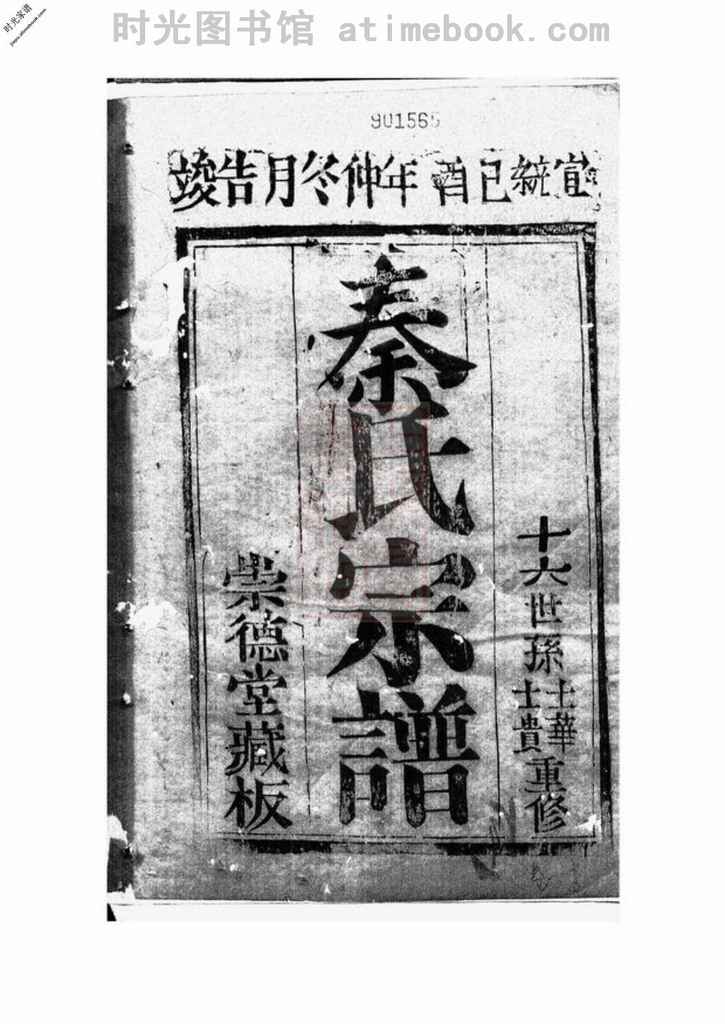 时光图书馆 atimebook.com
时光家谱
901565
宣統己酉年仲冬月告竣
十六世孫士華士貴重修
秦氏宗譜
崇德堂藏板